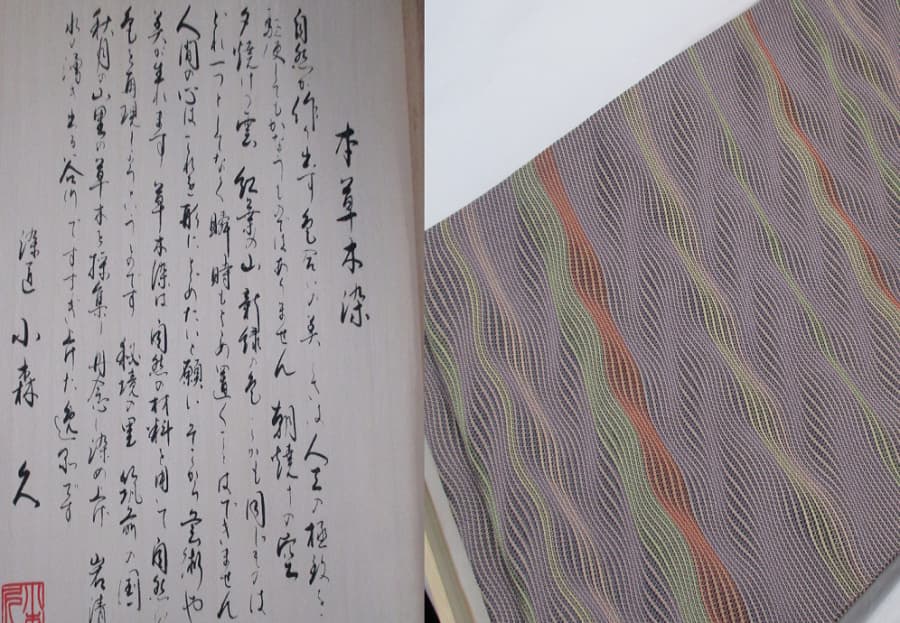 本草木染
自然が作り出す色合いの美しさは人工の極致を
駆使してもかなうものではありません 朝焼けの空
夕焼けの雲 紅葉の山 新緑の色 しかも同じものは
どれ一つとしてなく瞬時もとめ置くことはできません
人間の心はこれを形にとどめたいと願い そこから芸術や
美が生れます 草木染は自然の材料を用いて自然の
色を再現しようというものです 秘境の里 筑前の国
秋月の山里の草木を採集し 丹念に染め上げ 岩清
水の湧き出る谷川ですすぎ上げた逸品です
染匠 小森 久